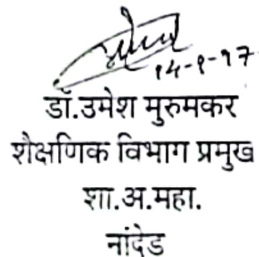 १४-९-१७
डॉ.उमेश मुरुमकर
शैक्षणिक विभाग प्रमुख
शा.अ.महा.
नांदेड